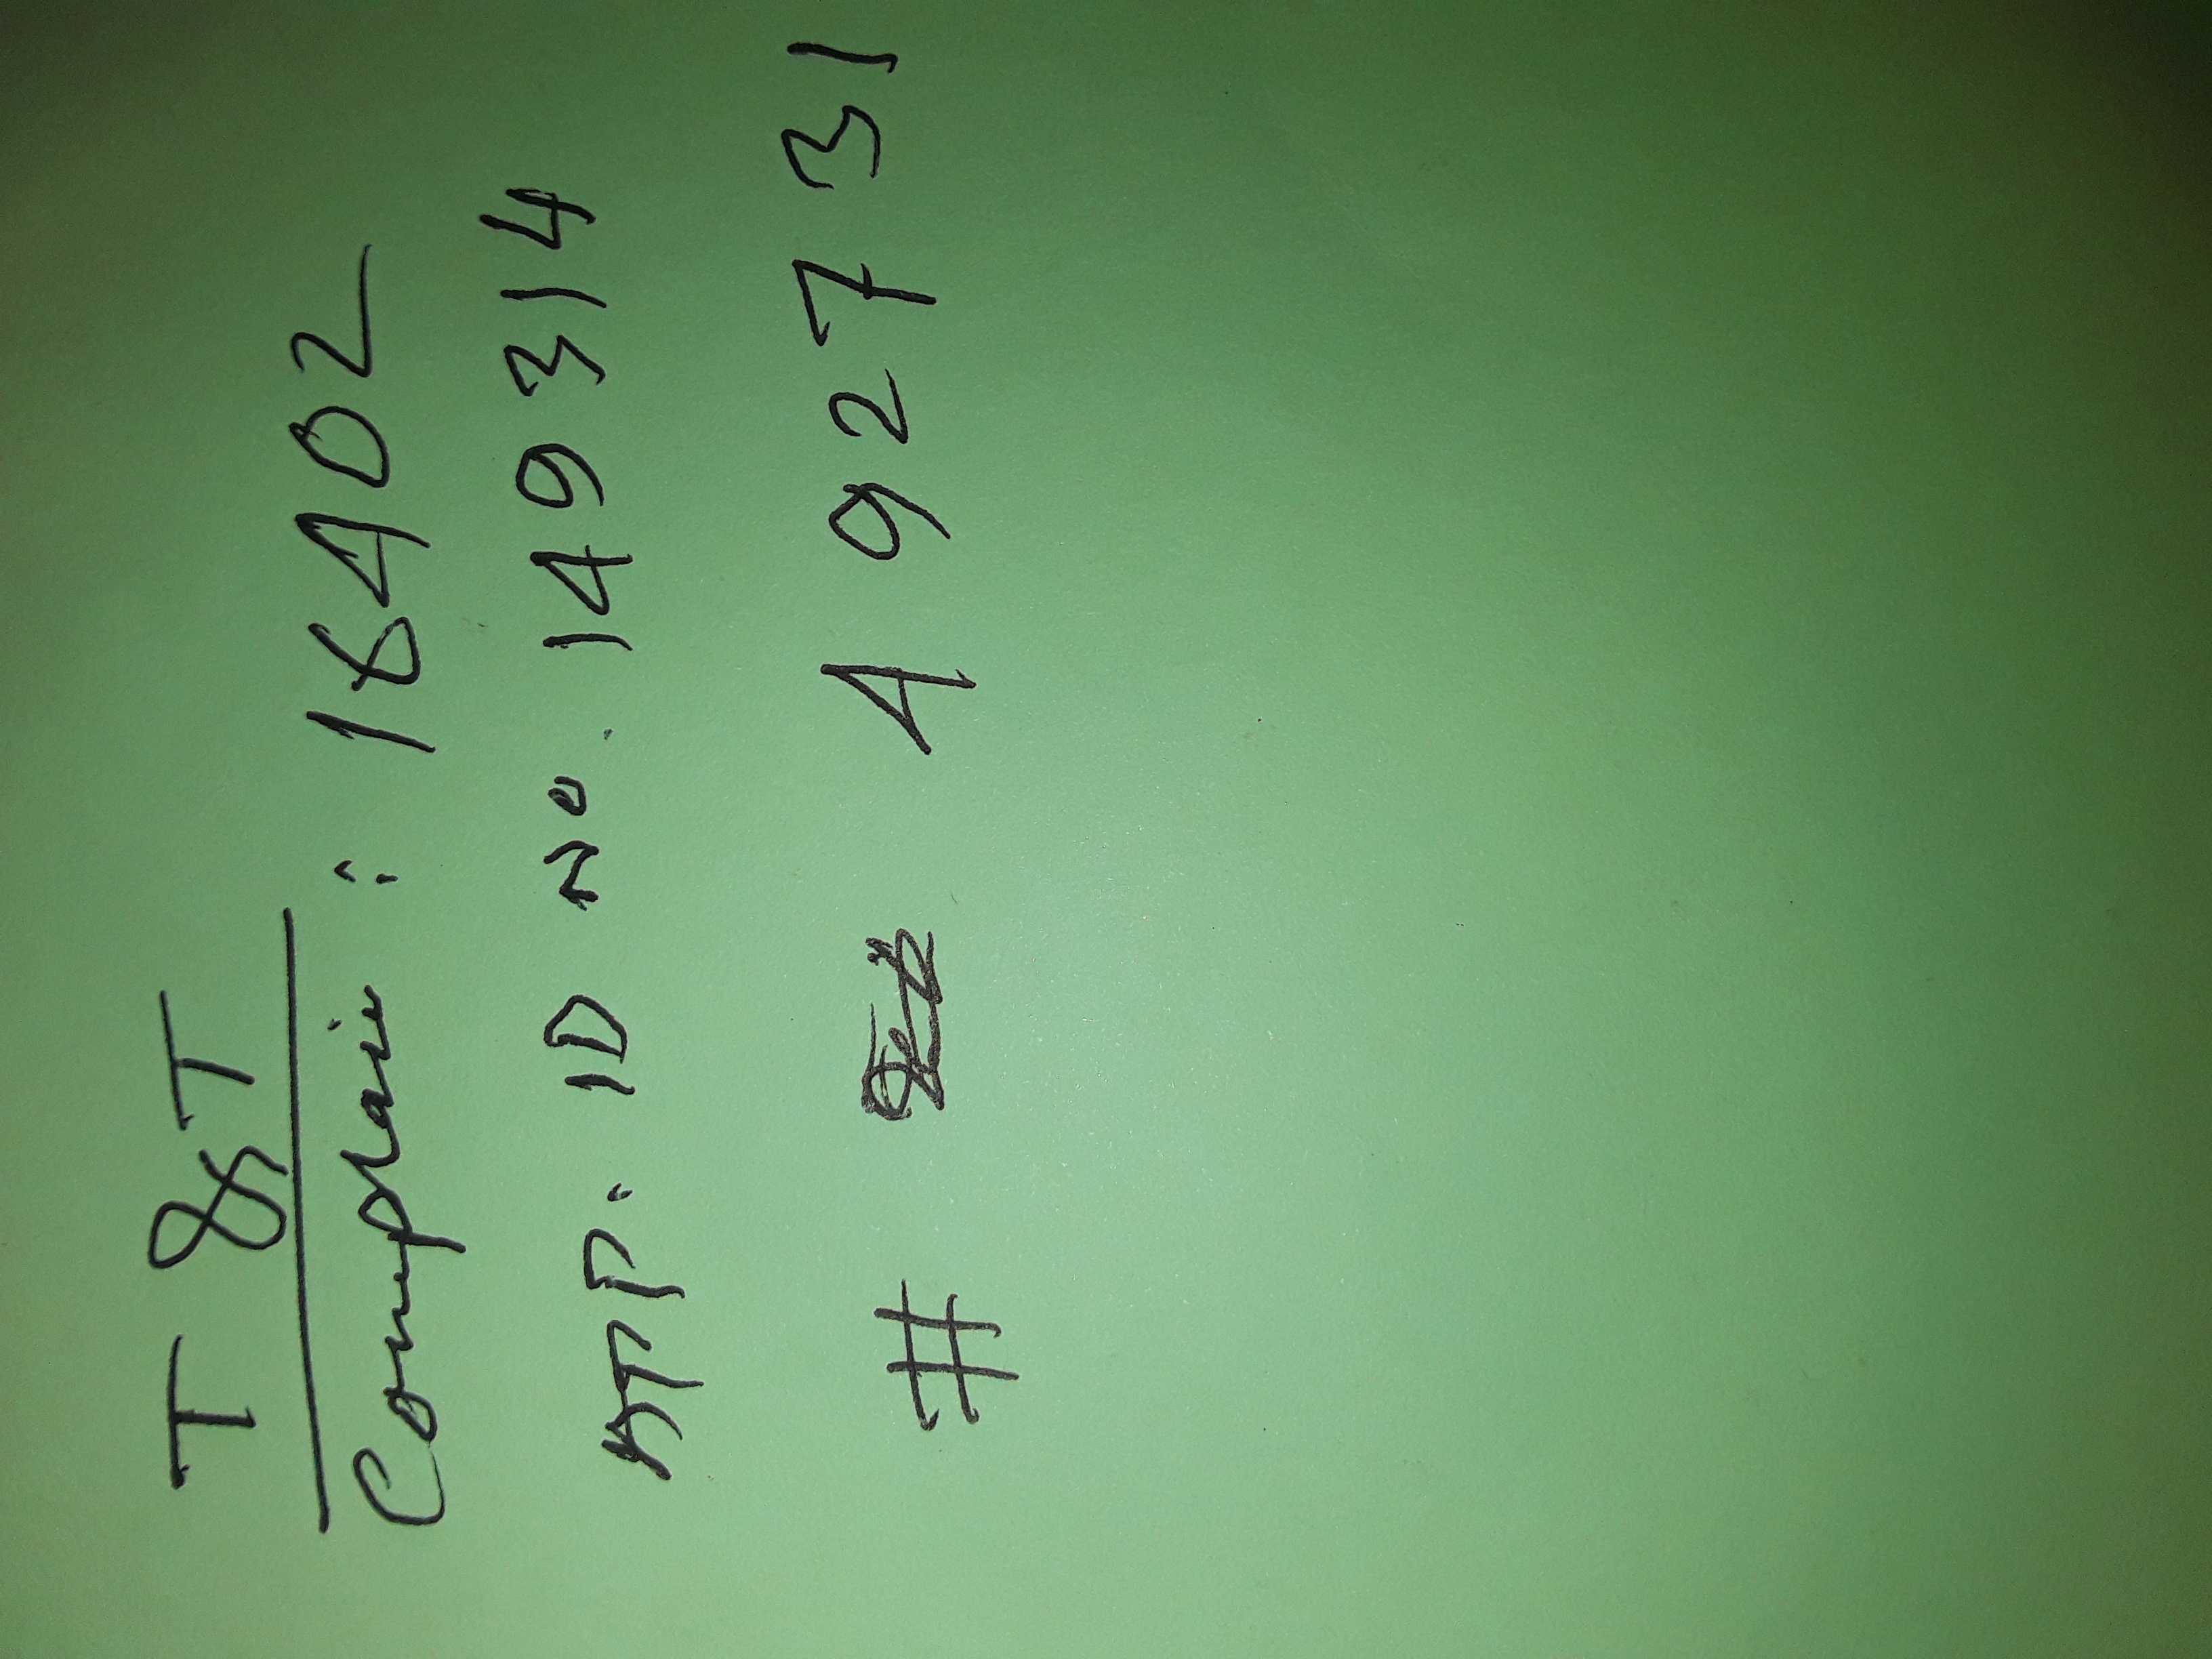 T & T
Complain : 16402
APP. ID No. 149314
# 492731